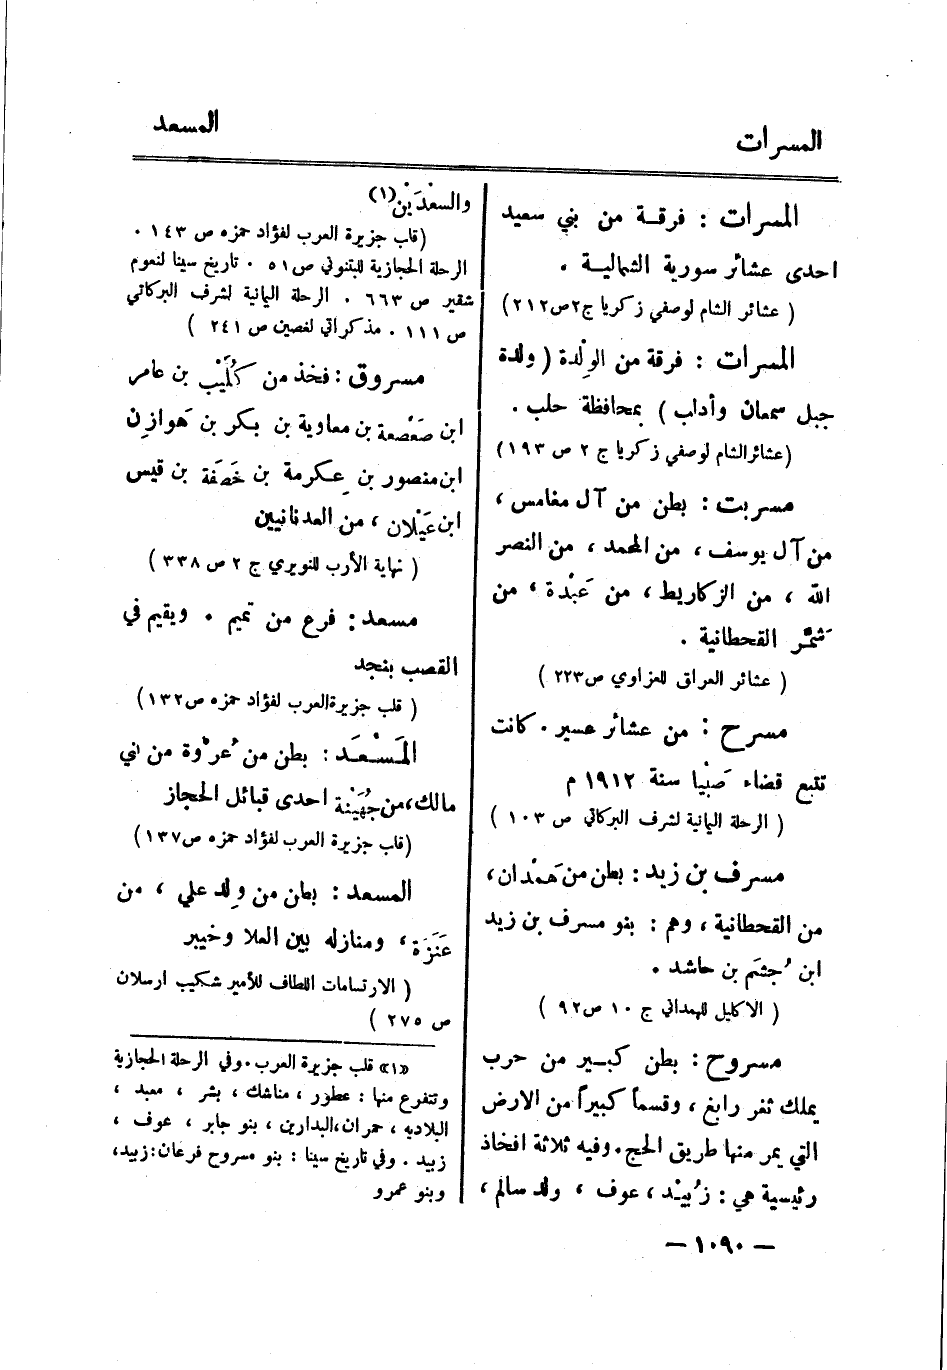 المسرات
المسعد
المسرات : فرقة من بني سعيد
احدى عشائر سورية الشمالية .
( عشائر الشام لوصفي زكريا ج٢ص٢١٢)
المسرات : فرقة من الوِلْدة ( ولدة
جبل سمعان وأداب ) بمحافظة حلب .
(عشائرالشام لوصفي زكريا ج ٢ ص ١٩٣)
مسربت : بطن من آل مغامس ،
من آل يوسف ، من المحمد ، من النصر
الله ، من الزكاريط ، من عَبْدة ، من
شَمَّر القحطانية .
( عشائر العراق للعزاوي ص٢٢٣ )
مسرح : من عشائر عسير . كانت
تتبع قضاء صَبْيا سنة ١٩١٢ م
( الرحلة اليمانية لشرف البركاتي ص ١٠٣ )
مسرف بن زيد : بطن من هَمْدان ،
من القحطانية ، وهم : بنو مسرف بن زيد
ابن جُشَم بن حاشد .
( الاكليل للهمداني ج ١٠ ص٩٢ )
مسروح : بطن كبير من حرب
يملك ثغر رابغ ، وقسماً كبيراً من الارض
التي يمر منها طريق الحج . وفيه ثلاثة افخاذ
رئيسية هي : زُبَيْد ، عوف ، ولد سالم ،
والسعْدَيْن(١)
(قاب جزيرة العرب لفؤاد حمزه ص ١٤٣ .
الرحلة الحجازية للبتنوني ص٥١ . تاريخ سينا لنعوم
شقير ص ٦٦٣ . الرحلة اليمانية لشرف البركاتي
ص ١١١ . مذكراتي لغصين ص ٢٤١ )
مسروق : فخذ من كُلَيْب بن عامر
ابن صَعْصعة بن معاوية بن بكر بن هَوازِن
ابن منصور بن عِكرمة بن خَصَفَة بن قيس
ابن عَيْلان ، من العدنانيين
( نهاية الأرب للنويري ج ٢ ص ٣٣٨ )
مسعد : فرع من تميم . ويقيم في
القصب بنجد
( قلب جزيرةالعرب لفؤاد حمزه ص١٣٢)
المَسْعَد : بطن من عُرْوة من بني
مالك،من جُهَيْنة احدى قبائل الحجاز
(قاب جزيرة العرب لفؤاد حمزه ص١٣٧)
المسعد : بطن من وِلد علي ، من
عَنَزَة ، ومنازله بين العلا وخيبر
( الارتسامات اللطاف للأمير شكيب ارسلان
ص ٢٧٥ )
«١» قلب جزيرة العرب . وفي الرحلة الحجازية
وتتفرع منها : عطور ، مناشك ، بشر ، معبد ،
البلاديه ، حمران،البدارين ، بنو جابر ، عوف ،
زبيد . وفي تاريخ سينا : بنو مسروح فرعان:زبيد،
وبنو عمرو
— ١٠٩٠ —